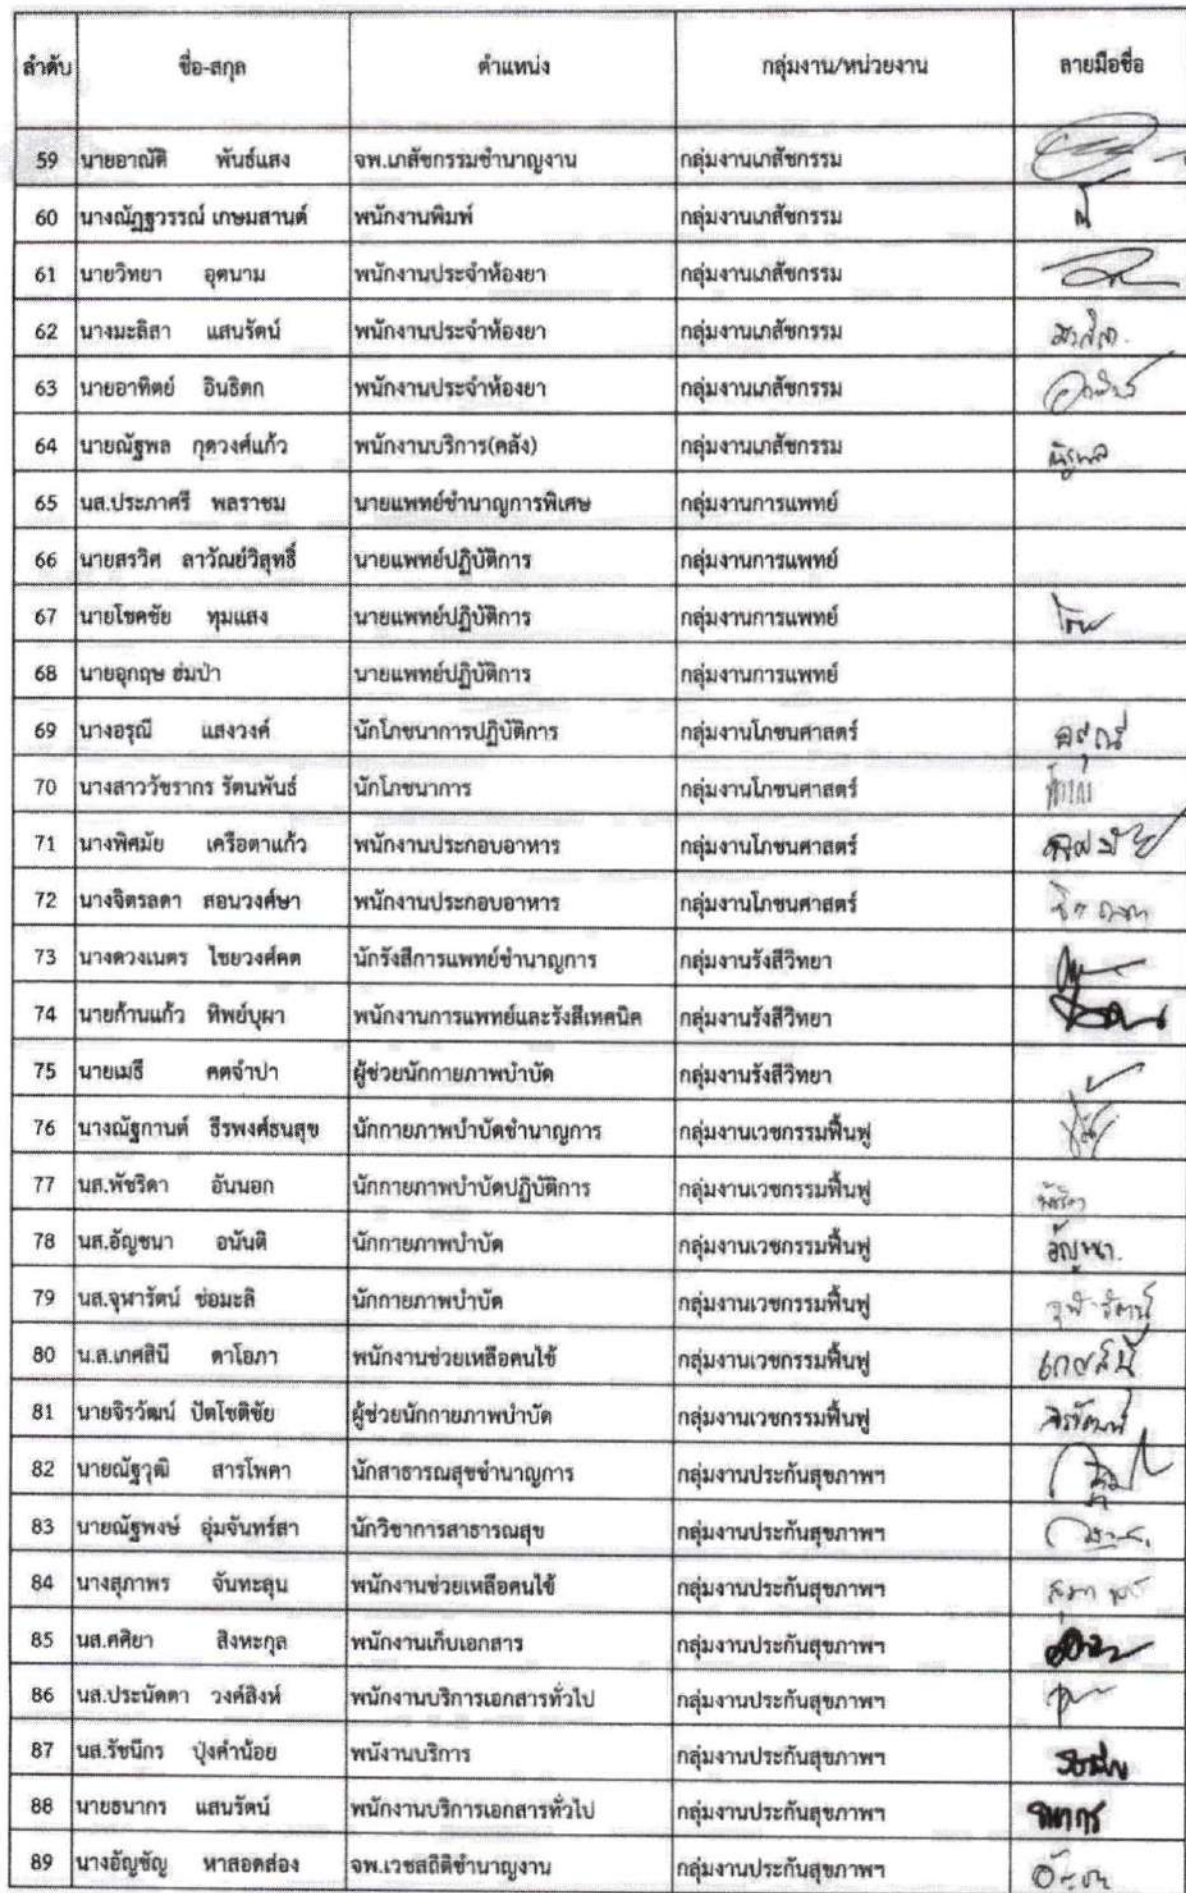 ลำดับ ชื่อ-สกุล ตำแหน่ง กลุ่มงาน/หน่วยงาน ลายมือชื่อ
59 นายอาณัติ พันธ์แสง จพ.เภสัชกรรมชำนาญงาน กลุ่มงานเภสัชกรรม
60 นางณัฏฐวรรณ์ เกษมสานต์ พนักงานพิมพ์ กลุ่มงานเภสัชกรรม
61 นายวิทยา อุตนาม พนักงานประจำห้องยา กลุ่มงานเภสัชกรรม
62 นางมะลิสา แสนรัตน์ พนักงานประจำห้องยา กลุ่มงานเภสัชกรรม
63 นายอาทิตย์ อินธิตก พนักงานประจำห้องยา กลุ่มงานเภสัชกรรม
64 นายณัฐพล กุดวงศ์แก้ว พนักงานบริการ(คลัง) กลุ่มงานเภสัชกรรม ณัฐพล
65 นส.ประภาศรี พลราชม นายแพทย์ชำนาญการพิเศษ กลุ่มงานการแพทย์
66 นายสรวิศ ลาวัณย์วิสุทธิ์ นายแพทย์ปฏิบัติการ กลุ่มงานการแพทย์
67 นายโชคชัย ทุมแสง นายแพทย์ปฏิบัติการ กลุ่มงานการแพทย์
68 นายอุกฤษ ฮ่มป่า นายแพทย์ปฏิบัติการ กลุ่มงานการแพทย์
69 นางอรุณี แสงวงค์ นักโภชนาการปฏิบัติการ กลุ่มงานโภชนศาสตร์ อรุณี
70 นางสาววัชรากร รัตนพันธ์ นักโภชนาการ กลุ่มงานโภชนศาสตร์
71 นางพิศมัย เครือตาแก้ว พนักงานประกอบอาหาร กลุ่มงานโภชนศาสตร์
72 นางจิตรลดา สอนวงศ์ษา พนักงานประกอบอาหาร กลุ่มงานโภชนศาสตร์
73 นางดวงเนตร ไชยวงศ์คต นักรังสีการแพทย์ชำนาญการ กลุ่มงานรังสีวิทยา
74 นายก้านแก้ว ทิพย์บุผา พนักงานการแพทย์และรังสีเทคนิค กลุ่มงานรังสีวิทยา
75 นายเมธี คตจำปา ผู้ช่วยนักกายภาพบำบัด กลุ่มงานรังสีวิทยา
76 นางณัฐกานต์ ธีรพงศ์ธนสุข นักกายภาพบำบัดชำนาญการ กลุ่มงานเวชกรรมฟื้นฟู
77 นส.พัชริดา อันนอก นักกายภาพบำบัดปฏิบัติการ กลุ่มงานเวชกรรมฟื้นฟู
78 นส.อัญชนา อนันติ นักกายภาพบำบัด กลุ่มงานเวชกรรมฟื้นฟู อัญชนา.
79 นส.จุฬารัตน์ ช่อมะลิ นักกายภาพบำบัด กลุ่มงานเวชกรรมฟื้นฟู จุฬารัตน์
80 น.ส.เกศสินี ดาโอภา พนักงานช่วยเหลือคนไข้ กลุ่มงานเวชกรรมฟื้นฟู
81 นายจิรวัฒน์ ปัตโชติชัย ผู้ช่วยนักกายภาพบำบัด กลุ่มงานเวชกรรมฟื้นฟู จิรวัฒน์
82 นายณัฐวุฒิ สารโพคา นักสาธารณสุขชำนาญการ กลุ่มงานประกันสุขภาพฯ
83 นายณัฐพงษ์ อุ่มจันทร์สา นักวิชาการสาธารณสุข กลุ่มงานประกันสุขภาพฯ
84 นางสุภาพร จันทะลุน พนักงานช่วยเหลือคนไข้ กลุ่มงานประกันสุขภาพฯ สุภาพร
85 นส.ศศิยา สิงหะกุล พนักงานเก็บเอกสาร กลุ่มงานประกันสุขภาพฯ
86 นส.ประนัดดา วงค์สิงห์ พนักงานบริการเอกสารทั่วไป กลุ่มงานประกันสุขภาพฯ
87 นส.รัชนีกร ปุ่งคำน้อย พนังานบริการ กลุ่มงานประกันสุขภาพฯ
88 นายธนากร แสนรัตน์ พนักงานบริการเอกสารทั่วไป กลุ่มงานประกันสุขภาพฯ ธนากร
89 นางอัญชัญ หาสอดส่อง จพ.เวชสถิติชำนาญงาน กลุ่มงานประกันสุขภาพฯ